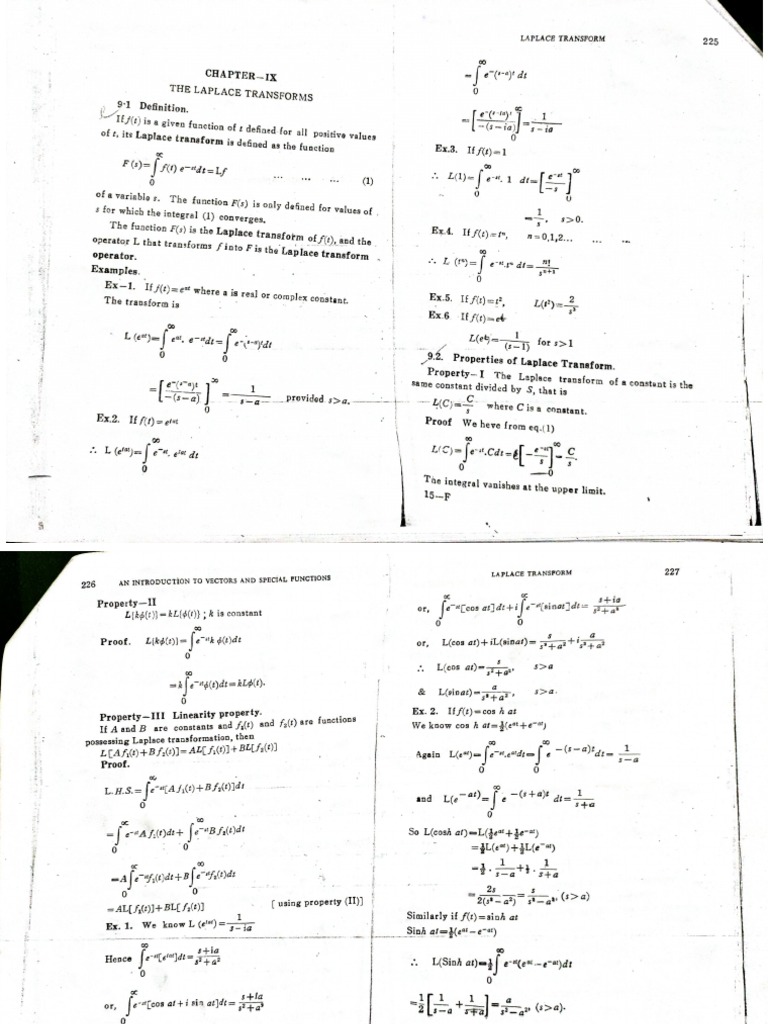 CHAPTER—IX
THE LAPLACE TRANSFORMS
9·1 Definition.
If f(t) is a given function of t defined for all positive values
of t, its Laplace transform is defined as the function
F (s)=∫₀^∞ f(t) e⁻ˢᵗdt=Lf ... ... ... (1)
of a variable s. The function F(s) is only defined for values of
s for which the integral (1) converges.
The function F(s) is the Laplace transform of f(t), and the
operator L that transforms f into F is the Laplace transform
operator.
Examples.
Ex—1. If f(t)=e^at where a is real or complex constant.
The transform is
L (e^at)=∫₀^∞ e^at. e^-st dt=∫₀^∞ e^-(s-a)t dt
=[e^-(s-a)t / -(s-a)]₀^∞ = 1/(s-a) provided s>a.
Ex.2. If f(t)=e^iat
∴ L (e^iat)=∫₀^∞ e^-st. e^iat dt
LAPLACE TRANSFORM 225
=∫₀^∞ e^-(s-a)t dt
=[e^-(s-ia)t / -(s-ia)]₀^∞ = 1/(s-ia)
Ex.3. If f(t)=1
∴ L(1)=∫₀^∞ e^-st. 1 dt=[e^-st / -s]₀^∞
=1/s, s>0.
Ex.4. If f(t)=tⁿ, n=0,1,2... ... ...
∴ L (tⁿ)=∫₀^∞ e^-st.tⁿ dt=n!/s^(n+1)
Ex.5. If f(t)=t², L(t²)=2/s³
Ex.6 If f(t)=e^t
L(e^t)=1/(s-1) for s>1
9.2. Properties of Laplace Transform.
Property—I The Laplace transform of a constant is the
same constant divided by S, that is
L(C)=C/s where C is a constant.
Proof We heve from eq.(1)
L(C)=∫₀^∞ e^-st.Cdt=[-e^-st/s]₀^∞=C/s.
The integral vanishes at the upper limit.
15—F
226 AN INTRODUCTION TO VECTORS AND SPECIAL FUNCTIONS
Property—II
L{kϕ(t)}=kL{ϕ(t)} ; k is constant
Proof. L{kϕ(t)}=∫₀^∞ e^-st k ϕ(t)dt
=k∫₀^∞ e^-st ϕ(t)dt=kLϕ(t).
Property—III Linearity property.
If A and B are constants and f₁(t) and f₂(t) are functions
possessing Laplace transformation, then
L[Af₁(t)+Bf₂(t)]=AL[f₁(t)]+BL[f₂(t)]
Proof.
L.H.S.=∫₀^∞ e^-st[Af₁(t)+Bf₂(t)]dt
=∫₀^∞ e^-st Af₁(t)dt+∫₀^∞ e^-st Bf₂(t)dt
=A∫₀^∞ e^-st f₁(t)dt+B∫₀^∞ e^-st f₂(t)dt
=AL[f₁(t)]+BL[f₂(t)] [using property (II)]
Ex. 1. We know L (e^iat)=1/(s-ia)
Hence ∫₀^∞ e^-st[e^iat]dt=(s+ia)/(s²+a²)
or, ∫₀^∞ e^-st[cos at+i sin at]dt=(s+ia)/(s²+a²)
LAPLACE TRANSFORM 227
or, ∫₀^∞ e^-st[cos at]dt+i∫₀^∞ e^-st[sinat]dt=(s+ia)/(s²+a²)
or, L(cos at)+iL(sinat)=s/(s²+a²)+i a/(s²+a²)
∴ L(cos at)=s/(s²+a²), s>a
& L(sinat)=a/(s²+a²), s>a.
Ex. 2. If f(t)=cos h at
We know cos h at=½(e^at+e^-at)
Again L(e^at)=∫₀^∞ e^-st.e^at dt=∫₀^∞ e^-(s-a)t dt=1/(s-a)
and L(e^-at)=∫₀^∞ e^-(s+a)t dt=1/(s+a)
So L(cosh at)=L(½e^at+½e^-at)
=½L(e^at)+½L(e^-at)
=½. 1/(s-a) +½. 1/(s+a)
=2s/2(s²-a²)=s/(s²-a²), (s>a)
Similarly if f(t)=sinh at
Sinh at=½(e^at-e^-at)
∴ L(Sinh at)=½∫₀^∞ e^-st(e^at-e^-at)dt
=½[1/(s-a) + 1/(s+a)]=a/(s²-a²), (s>a).